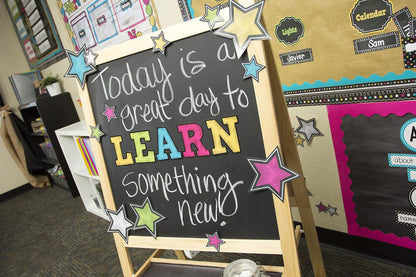 Today is a
great day to
LEARN
something
new!
Lights
Calendar
Sam
Javier
about